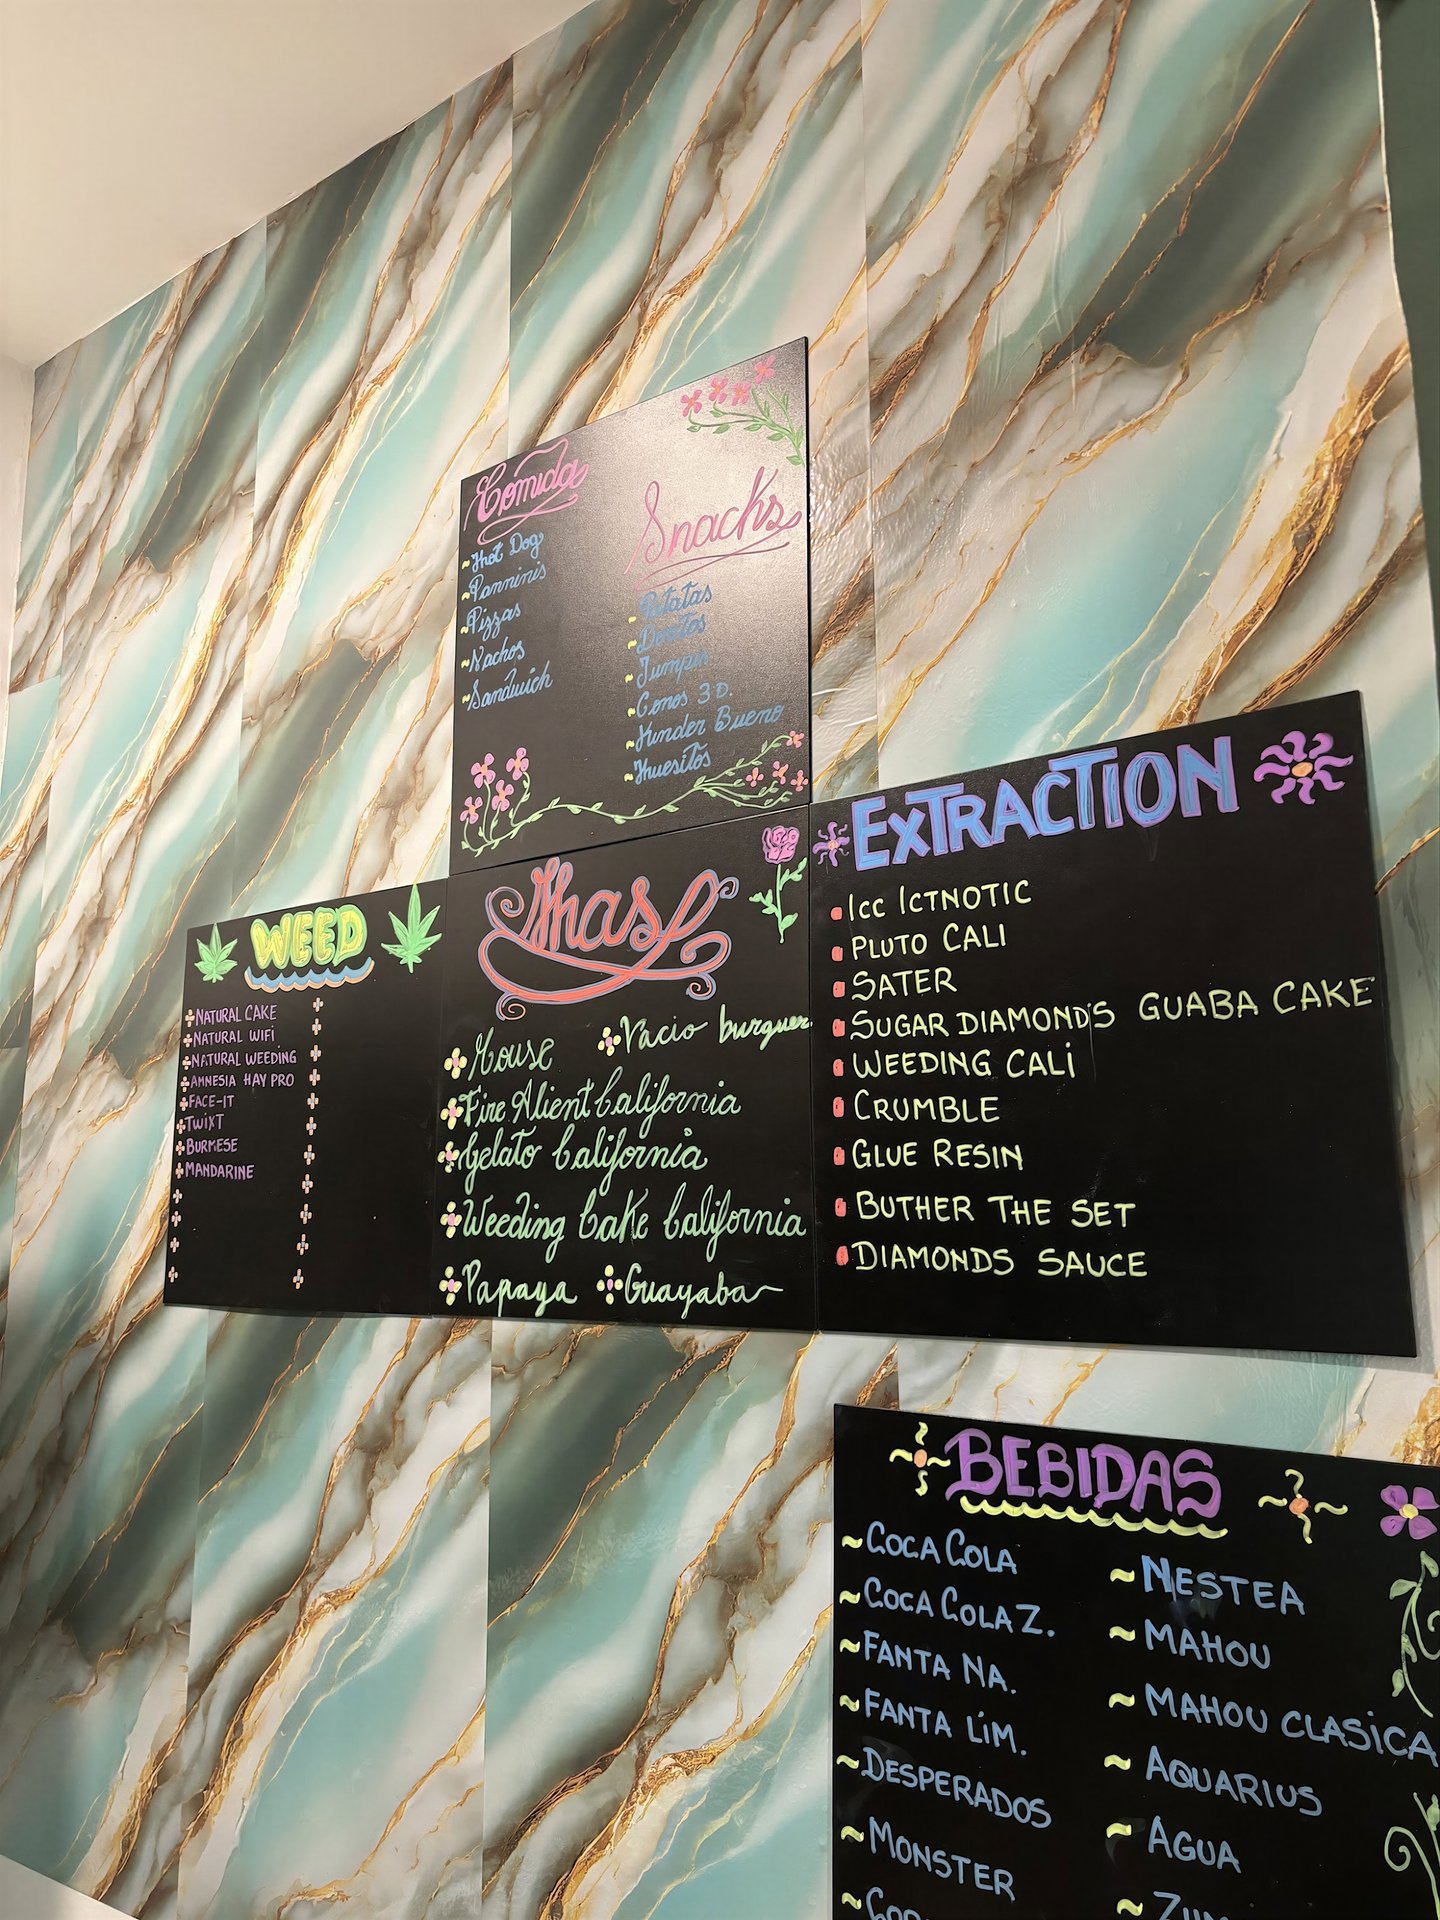 Comida
~Hot Dog
~Panninis
~Pizzas
~Nachos
~Sandwich
Snacks
~Patatas
~Doritos
~Jumpin
~Conos 3D.
~Kinder Bueno
~Huesitos
WEED
NATURAL CAKE
NATURAL WIFI
NATURAL WEEDING
AMNESIA HAY PRO
FACE-IT
TWIXT
BURMESE
MANDARINE
Hhas
Mouse
Vacio burguer
Fire Alient California
Gelato California
Weeding Cake California
Papaya
Guayaba
EXTRACTION
ICC ICTNOTIC
PLUTO CALI
SATER
SUGAR DIAMONDS GUABA CAKE
WEEDING CALI
CRUMBLE
GLUE RESIN
BUTHER THE SET
DIAMONDS SAUCE
BEBIDAS
~COCA COLA
~COCA COLA Z.
~FANTA NA.
~FANTA LIM.
~DESPERADOS
~MONSTER
~NESTEA
~MAHOU
~MAHOU CLASICA
~AQUARIUS
~AGUA